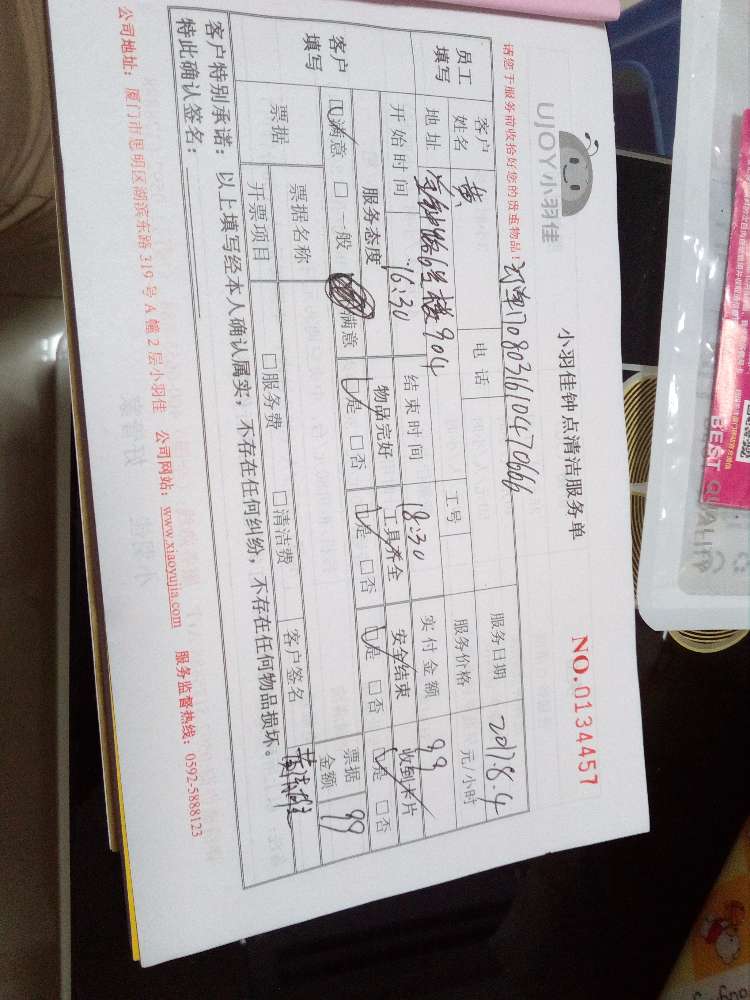 UJOY小羽佳
小羽佳钟点清洁服务单
NO.0134457
请您于服务前收拾好您的贵重物品!
员工填写
客户姓名 黄 电话 工号 服务日期 2017.8.4
地址 6号楼904 服务价格 元/小时
开始时间 16:30 结束时间 18:30 实付金额 99
客户填写
服务态度 物品完好 工具齐全 安全结束 收到卡片
☑满意 □一般 满意 ☑是 □否 ☑是 □否 ☑是 □否 ☑是 □否
票据 票据名称 □服务费 □清洁费 票据金额 99
开票项目 客户签名
客户特别承诺:以上填写经本人确认属实,不存在任何纠纷,不存在任何物品损坏。
特此确认签名:
公司地址:厦门市思明区湖滨东路319号A幢2层小羽佳 公司网站:www.xiaoyujia.com 服务监督热线:0592-5888123
BEST QUALITY